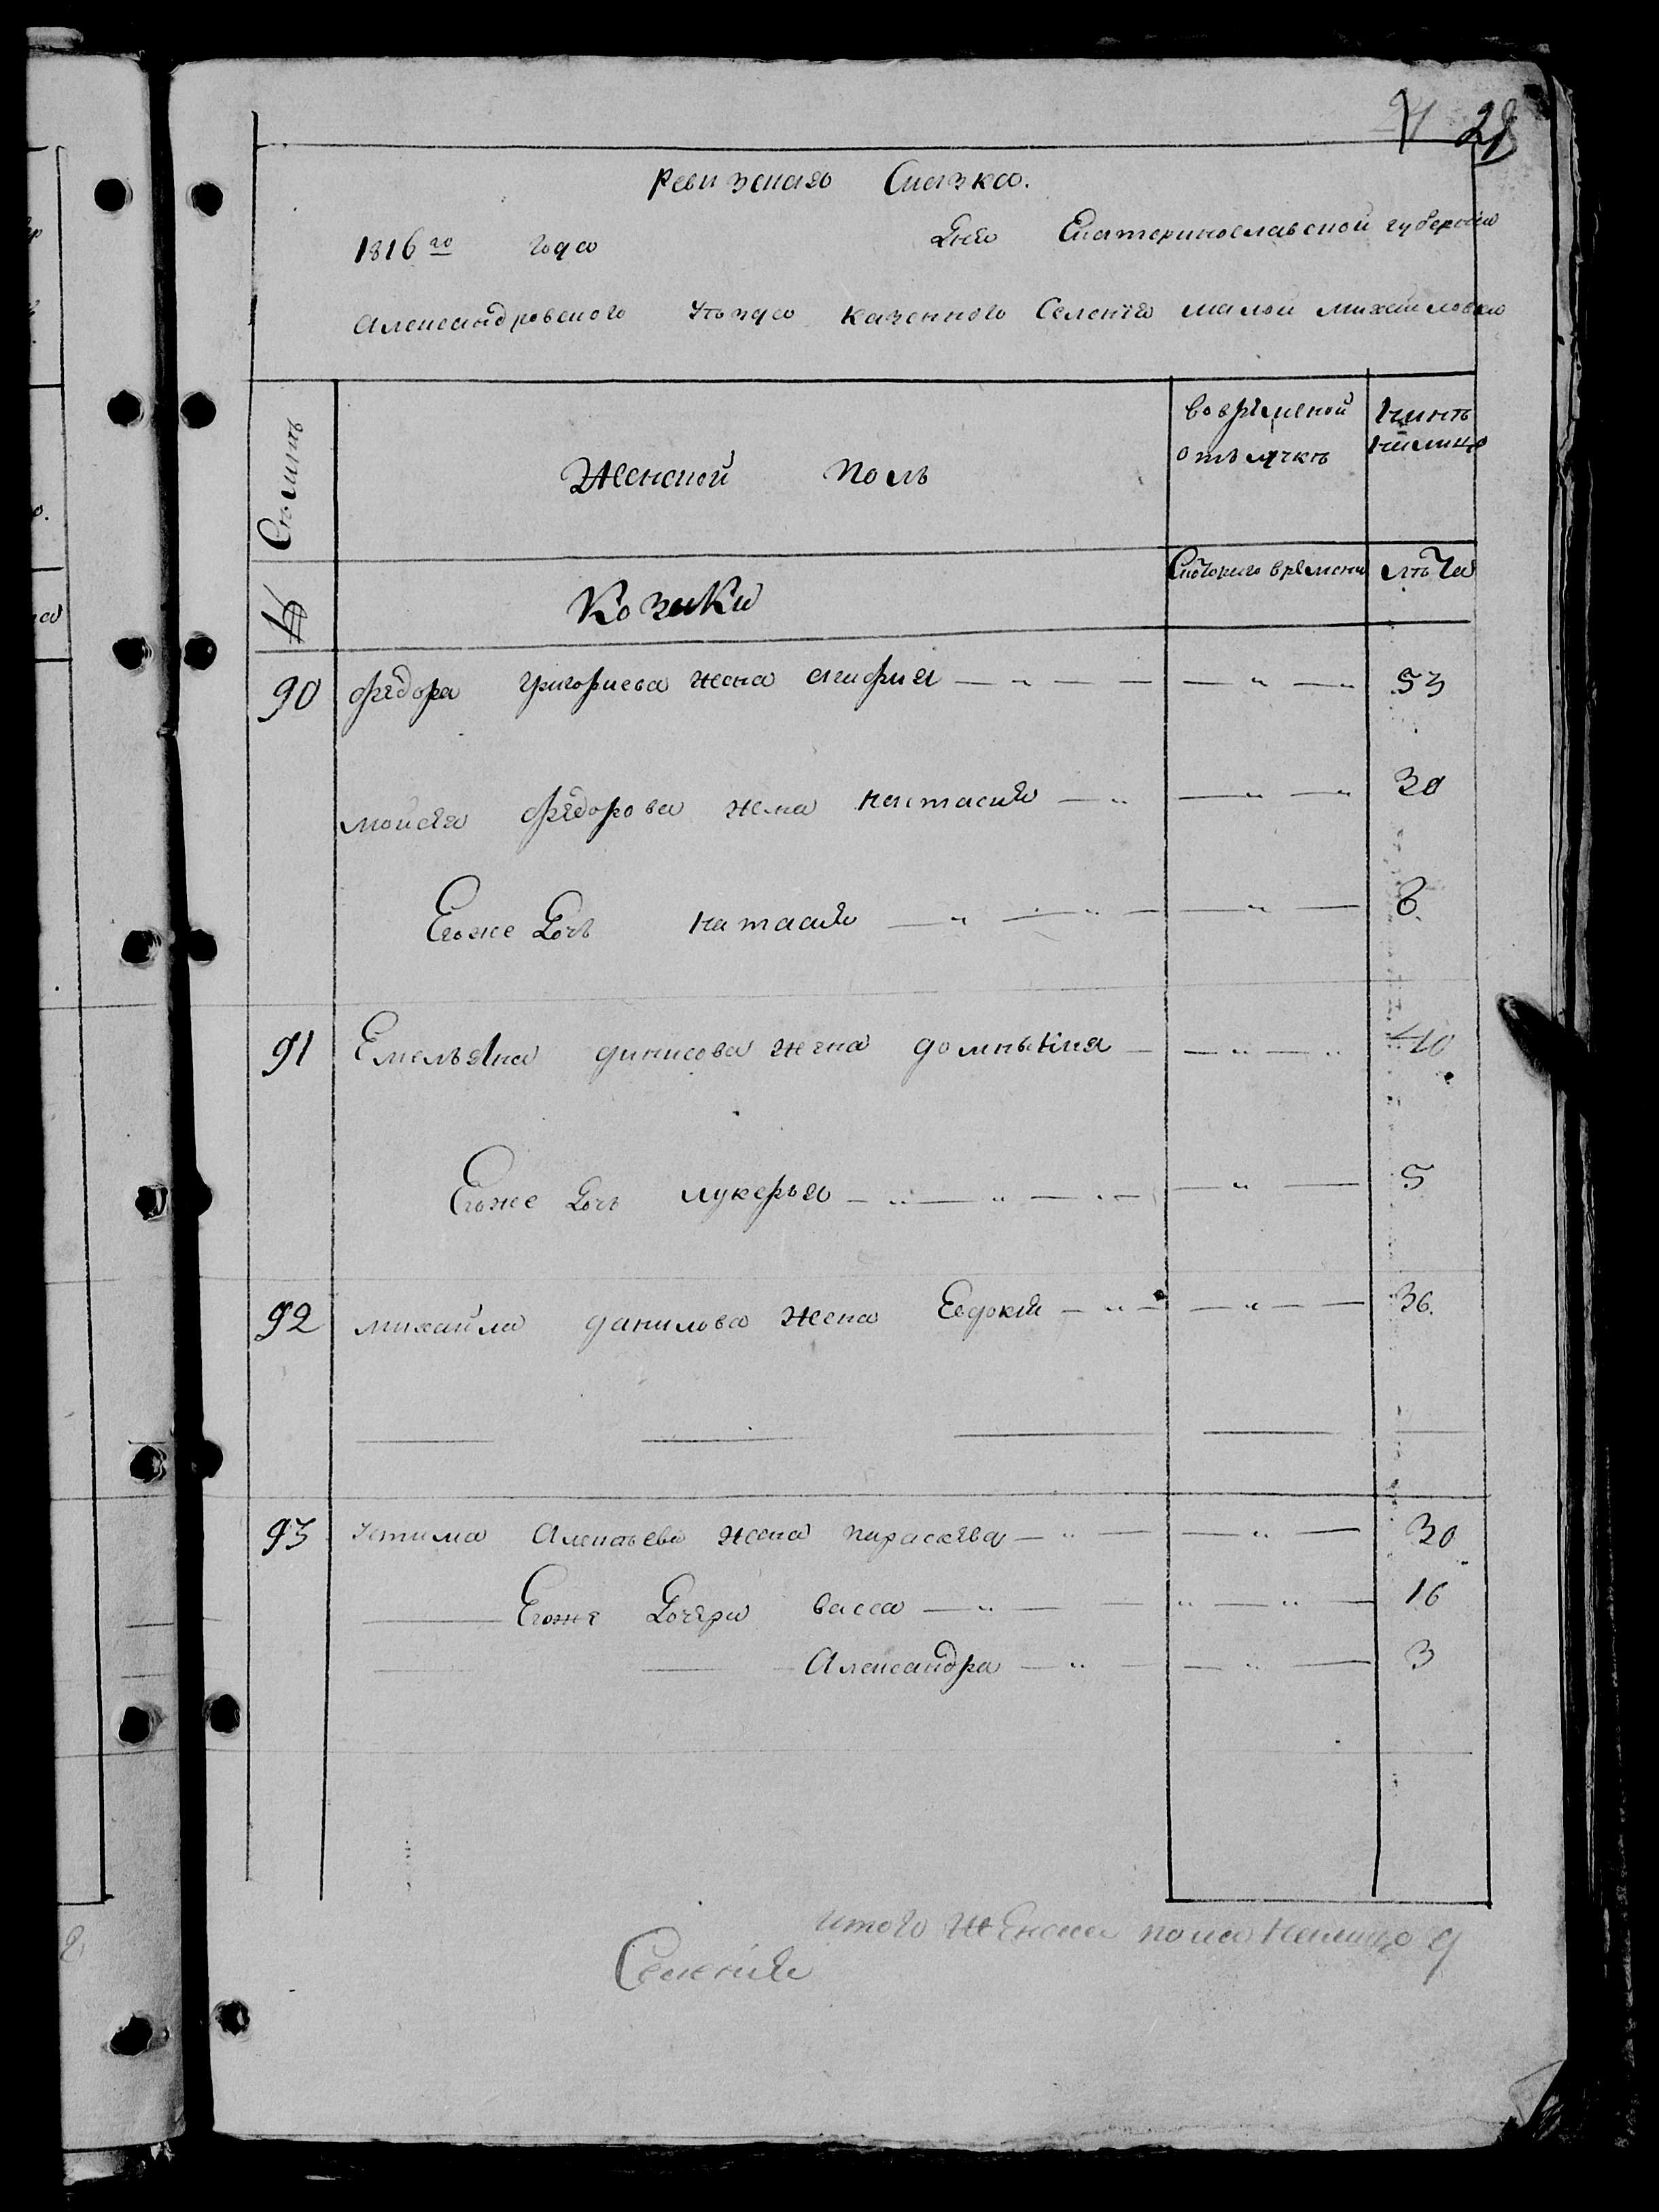 28
Ревизская Сказка.
1816го года Дня Екатеринославской губернии
Александровского Уезда казенного Селения малой михайловки
Семьи
Женской поль
во временой отлучке
Ныне на лицо
№
Козаки
С которого времени
лета
90 федора григориева жена агафия — „ — — — „ — 53
мойсея федорова жена настасия — „ — „ — 30
Егоже Дочь настасия — „ — „ — — „ — 8
91 Емельяна динисова жена домникия — — „ — „ 40
Егоже Дочь лукерья — „ — „ — „ — — „ — 5
92 михайла данилова жена Евдокия — „ — — „ — — 36.
93 Устима Алексеева жена параскева — „ — — „ — 30
Егоже Дочери васса — „ — — „ — „ — 16
Александра — „ — — „ — 3
итого женска пола налицо 9
Селения